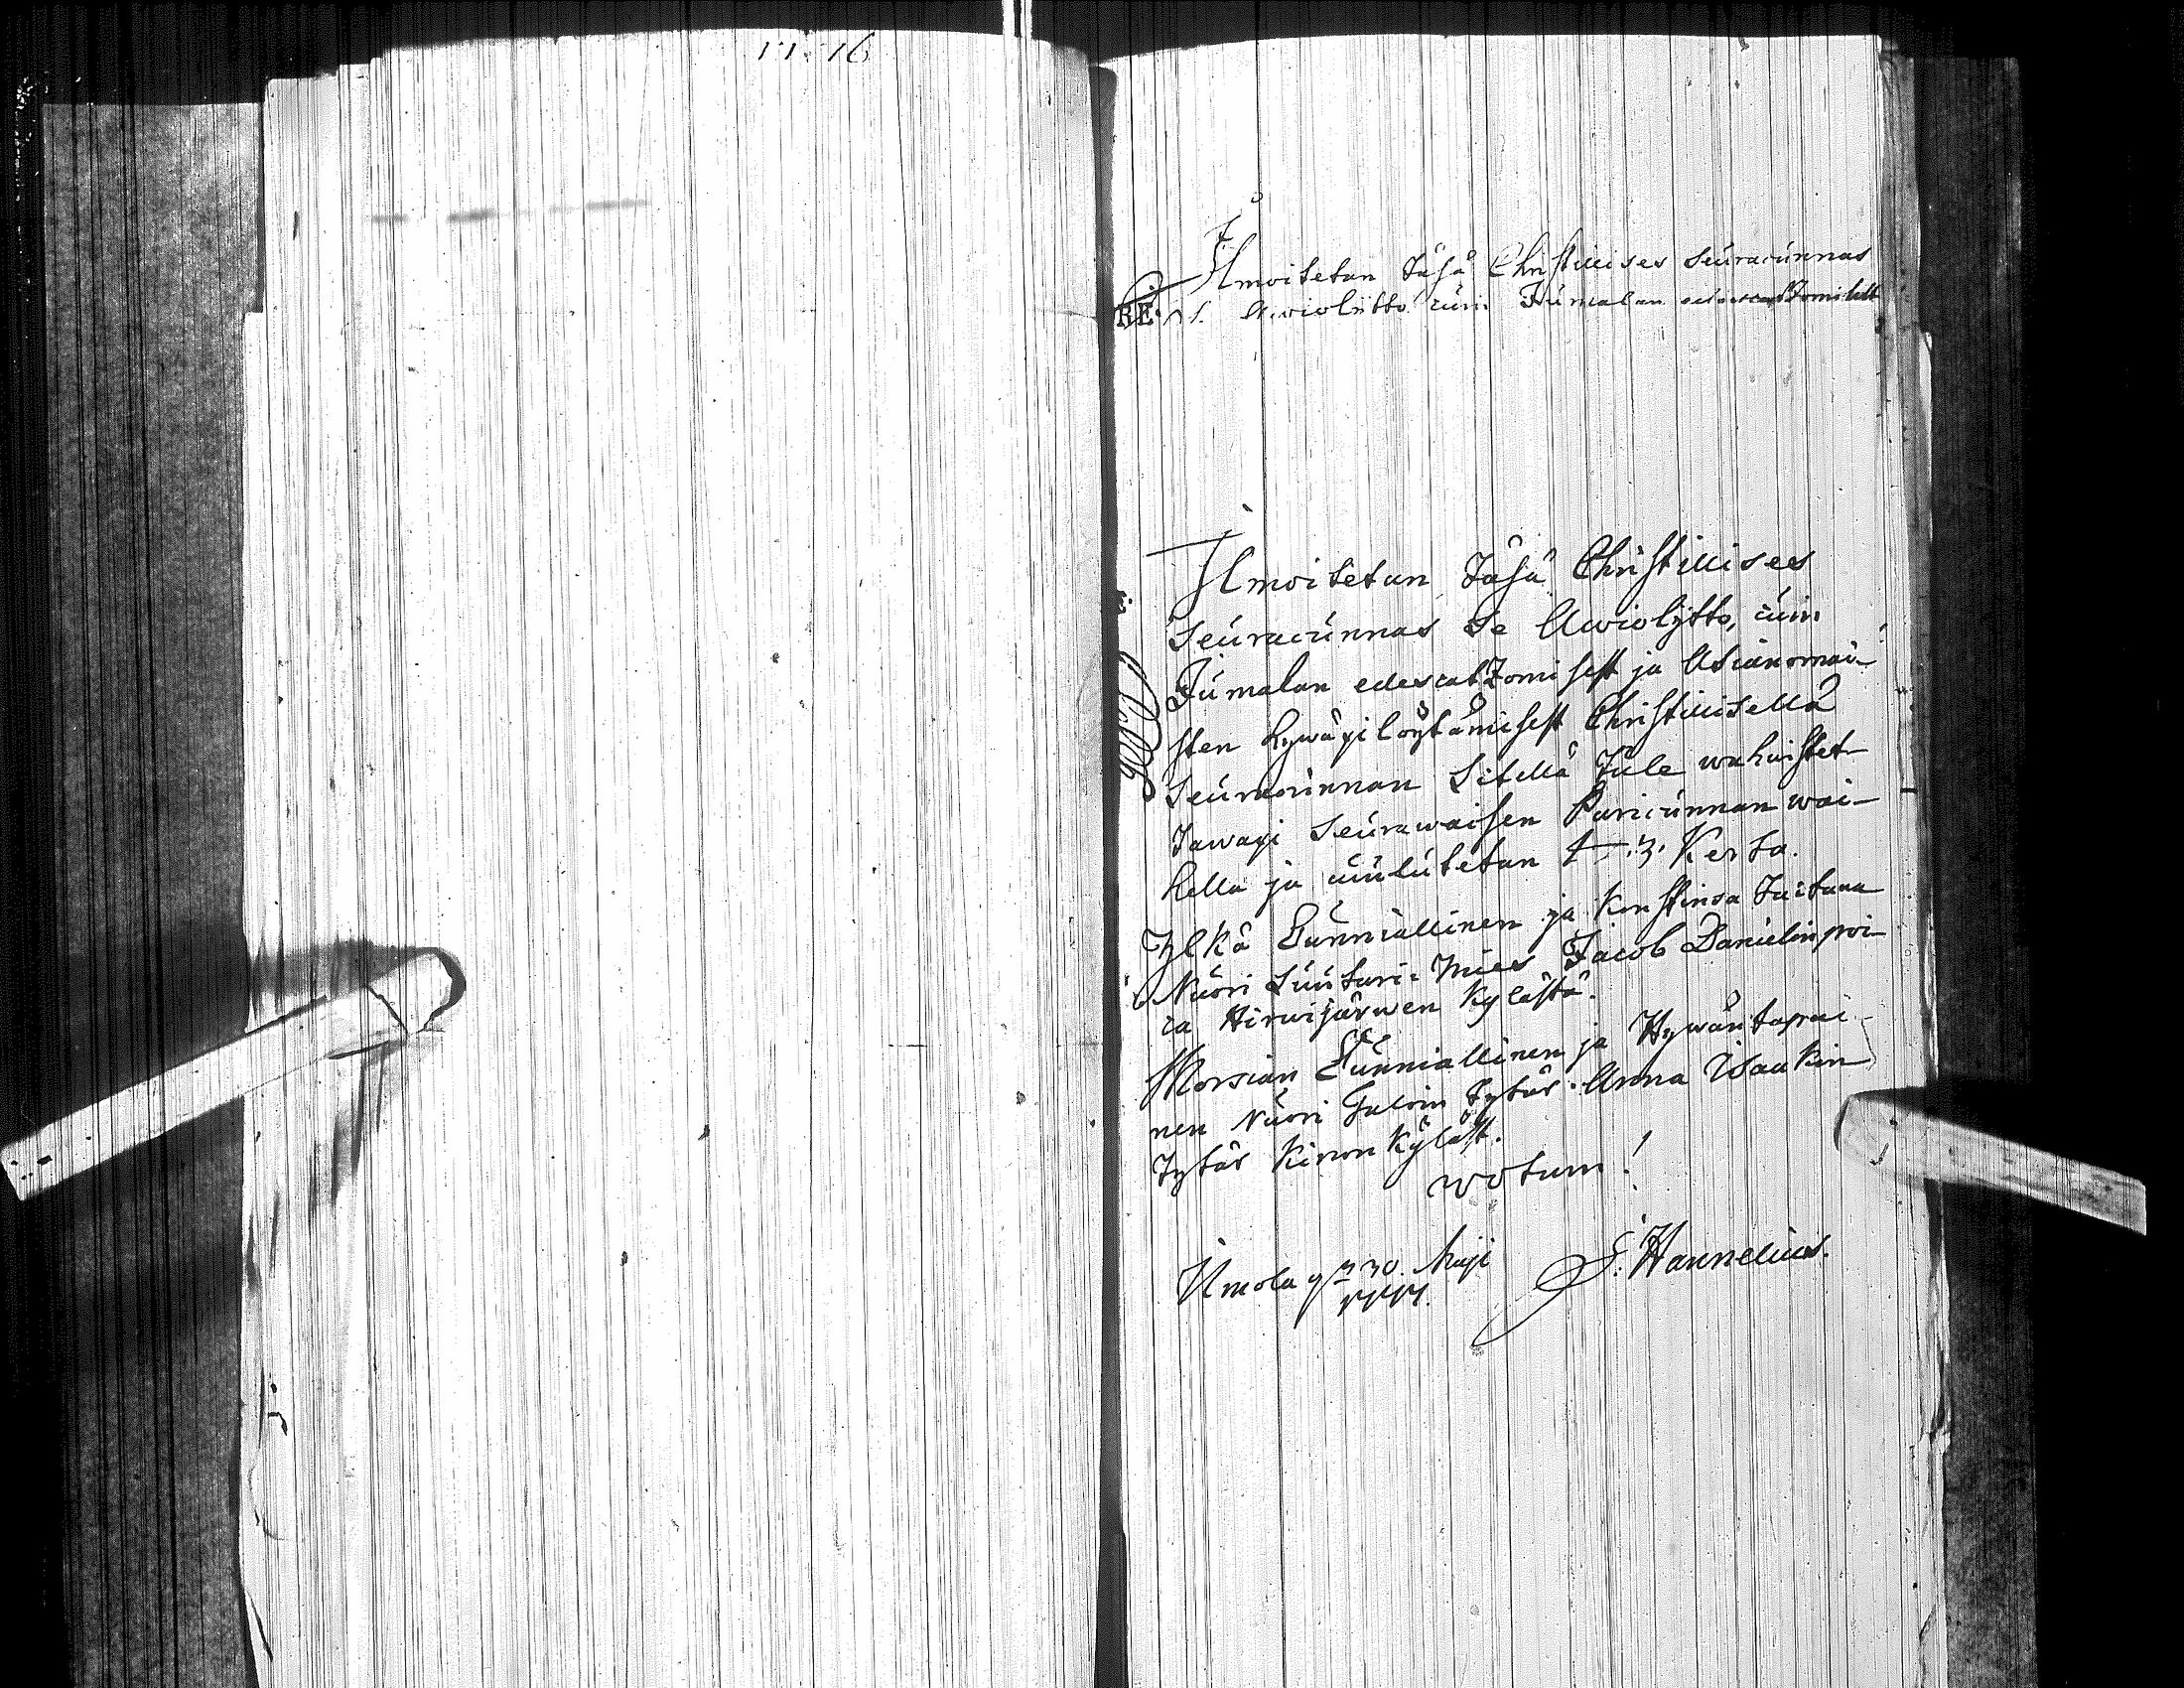 11. 16
Ilmoitetan täsä Christillises seuracunnas
RE. s. Awioliitto cuin Jumalan edescatzomisest
Ilmoitetan täsä Christillises
Seuracunnas se Awiolijtto, cuin
Jumalan edescatzomisest ja Asianomai-
sten hywäxilöytämisest Christillisellä
Seuracunnan Sitellä tule wahwistet-
tawaxi seurawaisen Paricunnan wai-
hella ja cuulutetan 3. Kerta.
Ylkä Cunniallinen ja Konstinsa taitawa
Nuori Suutari-Mies Jacob Danielin poi-
ca Hirwijärwen Kylästä.
Morsian Cunniallinen ja Hywäntapai-
nen Nuori Taloin tytär Anna Isaakin
Tytär Kinon Kyläst.
wotum!
Umola 30. Maji
S. Hannelius.